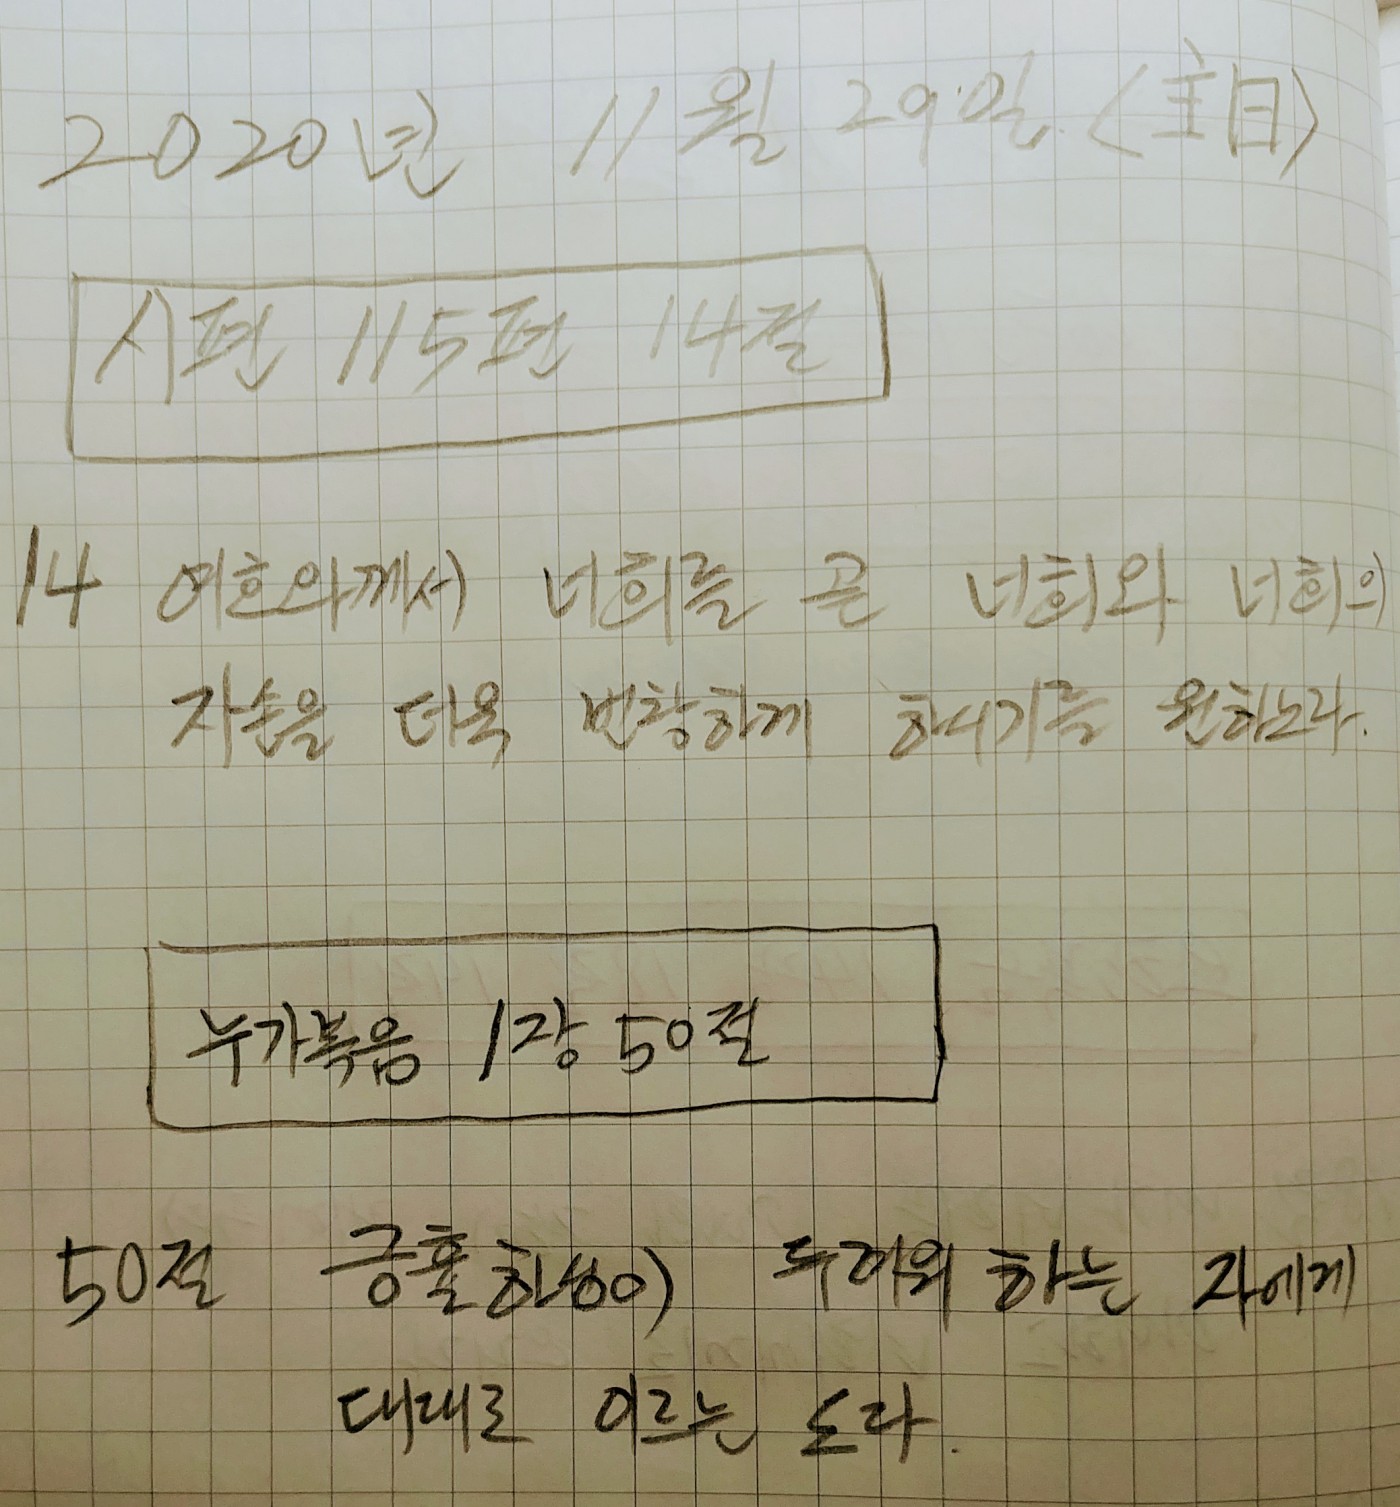 2020년 11월 29일 (主日)
시편 115편 14절
14 여호와께서 너희를 곧 너희와 너희의
자손을 더욱 번창하게 하시기를 원하노라.
누가복음 1장 50절
50절 긍휼하심이 두려워 하는 자에게
대대로 이르는 도다.